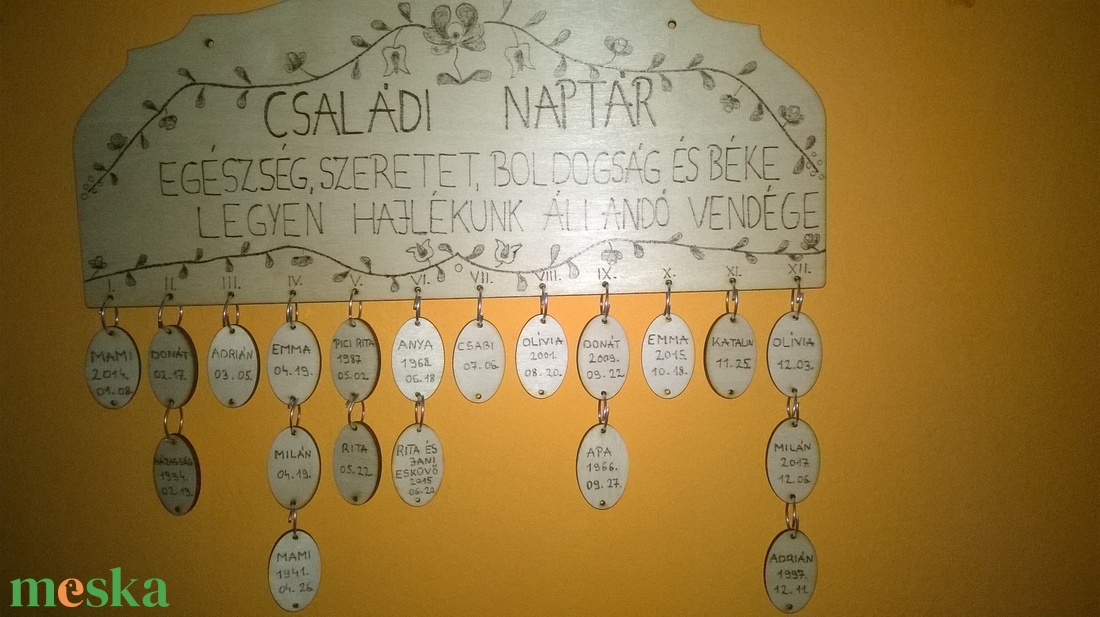 CSALÁDI NAPTÁR
EGÉSZSÉG, SZERETET, BOLDOGSÁG ÉS BÉKE
LEGYEN HAJLÉKUNK ÁLLANDÓ VENDÉGE
I. II. III. IV. V. VI. VII. VIII. IX. X. XI. XII.
MAMI
2014.
01.08.
DONÁT
02.17.
HÁZASSÁG
1994.
02.19.
ADRIÁN
03.05.
EMMA
04.19.
MILÁN
04.19.
MAMI
1941.
04.26.
PICI RITA
1987
05.02
RITA
05.22
ANYA
1968.
06.18
RITA ÉS
JANI
ESKÜVŐ
2015
06.20.
CSABI
07.06.
OLÍVIA
2001.
08.20.
DONÁT
2009.
09.22
APA
1966.
09.27.
EMMA
2015.
10.18.
KATALIN
11.25.
OLÍVIA
12.03.
MILÁN
2017
12.06.
ADRIÁN
1997.
12.11
meska